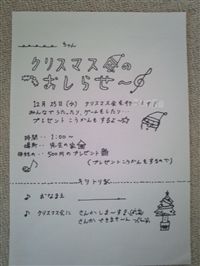 ちゃん
クリスマス会の
おしらせ〜
12月25日(水) クリスマス会を行
みんなでうたったり、ゲームをしたり…
プレゼントこうかんもするよ〜☆
時間… 1:00〜
場所… 先生の家
持物… 500円のプレゼント
(プレゼントこうかんをするので)
キリトリ
おなまえ
クリスマス会に さんかしま〜す
さんかできませ〜ん